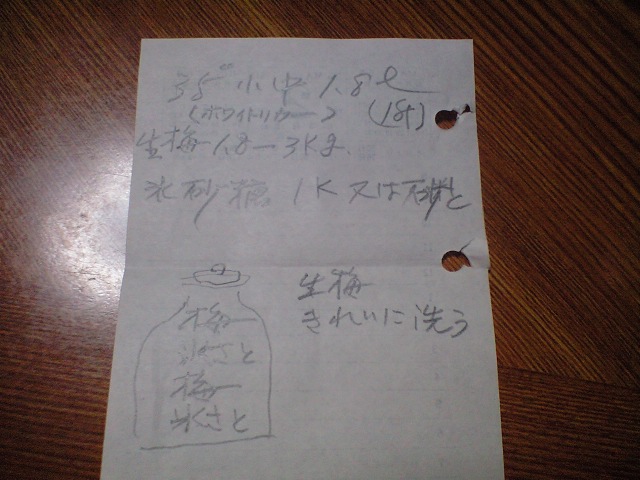 35° 小中 1.8ℓ
(ホワイトリカー) (1升)
生梅 1.8ー3Kg.
氷砂糖 1K 又は
生梅
きれいに洗う
梅
氷さと
梅
氷さと